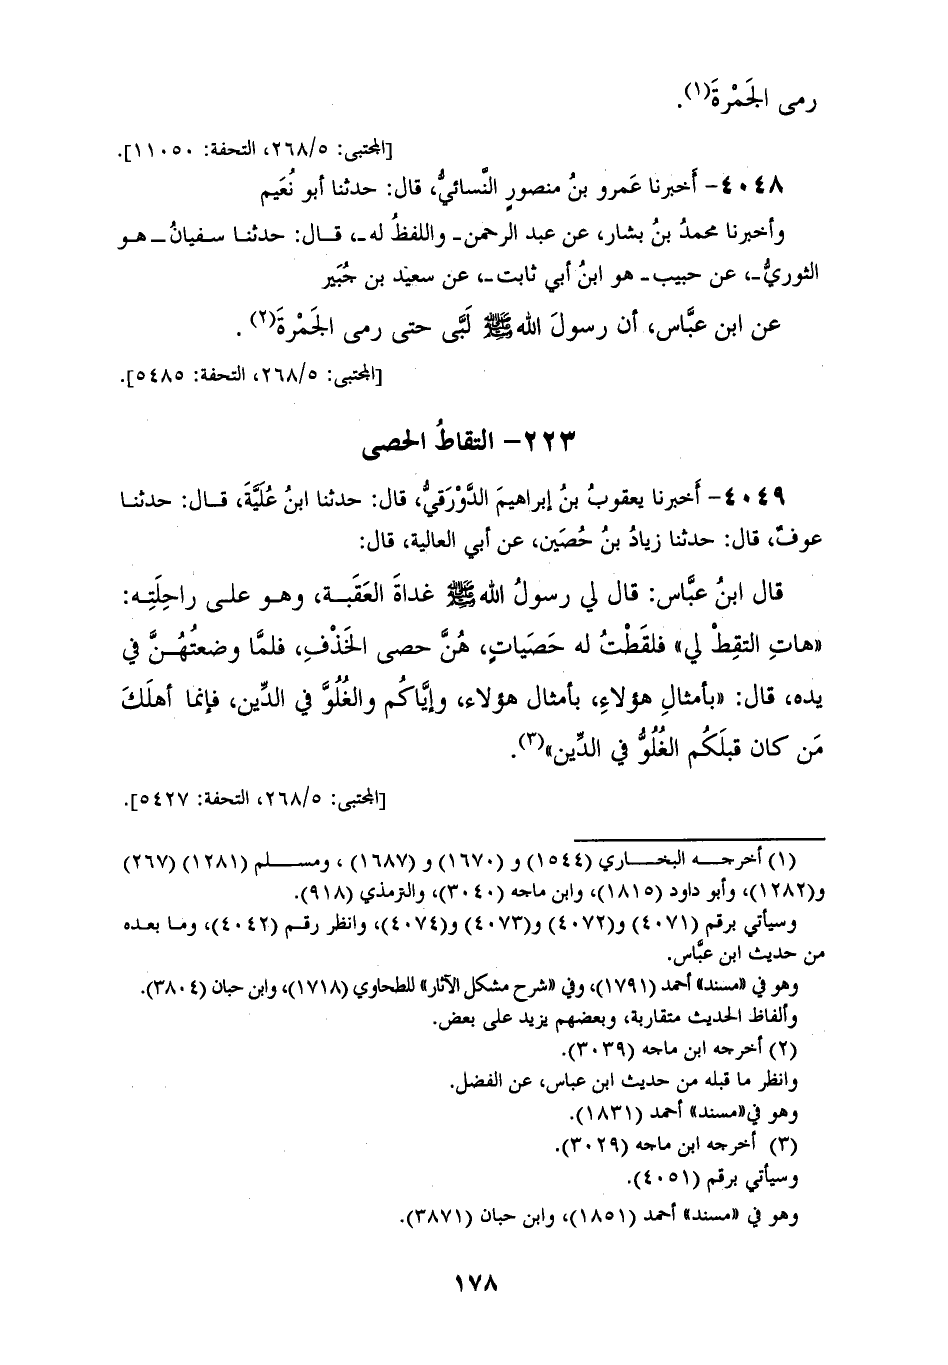 رمى الجَمْرةَ(١).
[المجتبى: ٢٦٨/٥، التحفة: ١١٠٥٠].
٤٠٤٨- أَخبرنا عَمرو بنُ منصورٍ النَّسائيُّ، قال: حدثنا أبو نُعَيم
وأخبرنا محمدُ بنُ بشار، عن عبد الرحمن- واللفظُ له-، قـال: حدثنـا سـفيانُ- هـو
الثوريُّ-، عن حبيب- هو ابنُ أبي ثابت-، عن سعيد بن جُبَير
عن ابن عبَّاس، أن رسولَ الله ﷺ لَبَّى حتى رمى الجَمْرةَ(٢).
[المجتبى: ٢٦٨/٥، التحفة: ٥٤٨٥].
٢٢٣- التقاطُ الحصى
٤٠٤٩- أَخبرنا يعقوبُ بنُ إبراهيمَ الدَّوْرَقيُّ، قال: حدثنا ابنُ عُلَيَّةَ، قـال: حدثنـا
عوفٌ، قال: حدثنا زيادُ بنُ حُصَين، عن أبي العالية، قال:
قال ابنُ عبَّاس: قال لي رسولُ الله ﷺ غداةَ العَقَبـة، وهـو علـى راحِلَتِـه:
«هاتِ التقِطْ لي» فلقَطْتُ له حَصَياتٍ، هُنَّ حصى الخَذْفِ، فلمَّا وضعتُهُـنَّ في
يده، قال: «بأمثالِ هؤلاءِ، بأمثال هؤلاء، وإيَّاكُم والغُلُوَّ في الدِّين، فإنما أهلَكَ
مَن كان قبلَكُم الغُلُوُّ في الدِّين»(٣).
[المجتبى: ٢٦٨/٥، التحفة: ٥٤٢٧].
(١) أخرجـه البخـاري (١٥٤٤) و (١٦٧٠) و (١٦٨٧) ، ومسـلم (١٢٨١) (٢٦٧)
و(١٢٨٢)، وأبو داود (١٨١٥)، وابن ماجه (٣٠٤٠)، والترمذي (٩١٨).
وسيأتي برقم (٤٠٧١) و(٤٠٧٢) و(٤٠٧٣) و(٤٠٧٤)، وانظر رقـم (٤٠٤٢)، ومـا بعـده
من حديث ابن عبَّاس.
وهو في «مسند» أحمد (١٧٩١)، وفي «شرح مشكل الآثار» للطحاوي (١٧١٨)، وابن حبان (٣٨٠٤).
وألفاظ الحديث متقاربة، وبعضهم يزيد على بعض.
(٢) أخرجه ابن ماجه (٣٠٣٩).
وانظر ما قبله من حديث ابن عباس، عن الفضل.
وهو في«مسند» أحمد (١٨٣١).
(٣) أخرجه ابن ماجه (٣٠٢٩).
وسيأتي برقم (٤٠٥١).
وهو في «مسند» أحمد (١٨٥١)، وابن حبان (٣٨٧١).
١٧٨